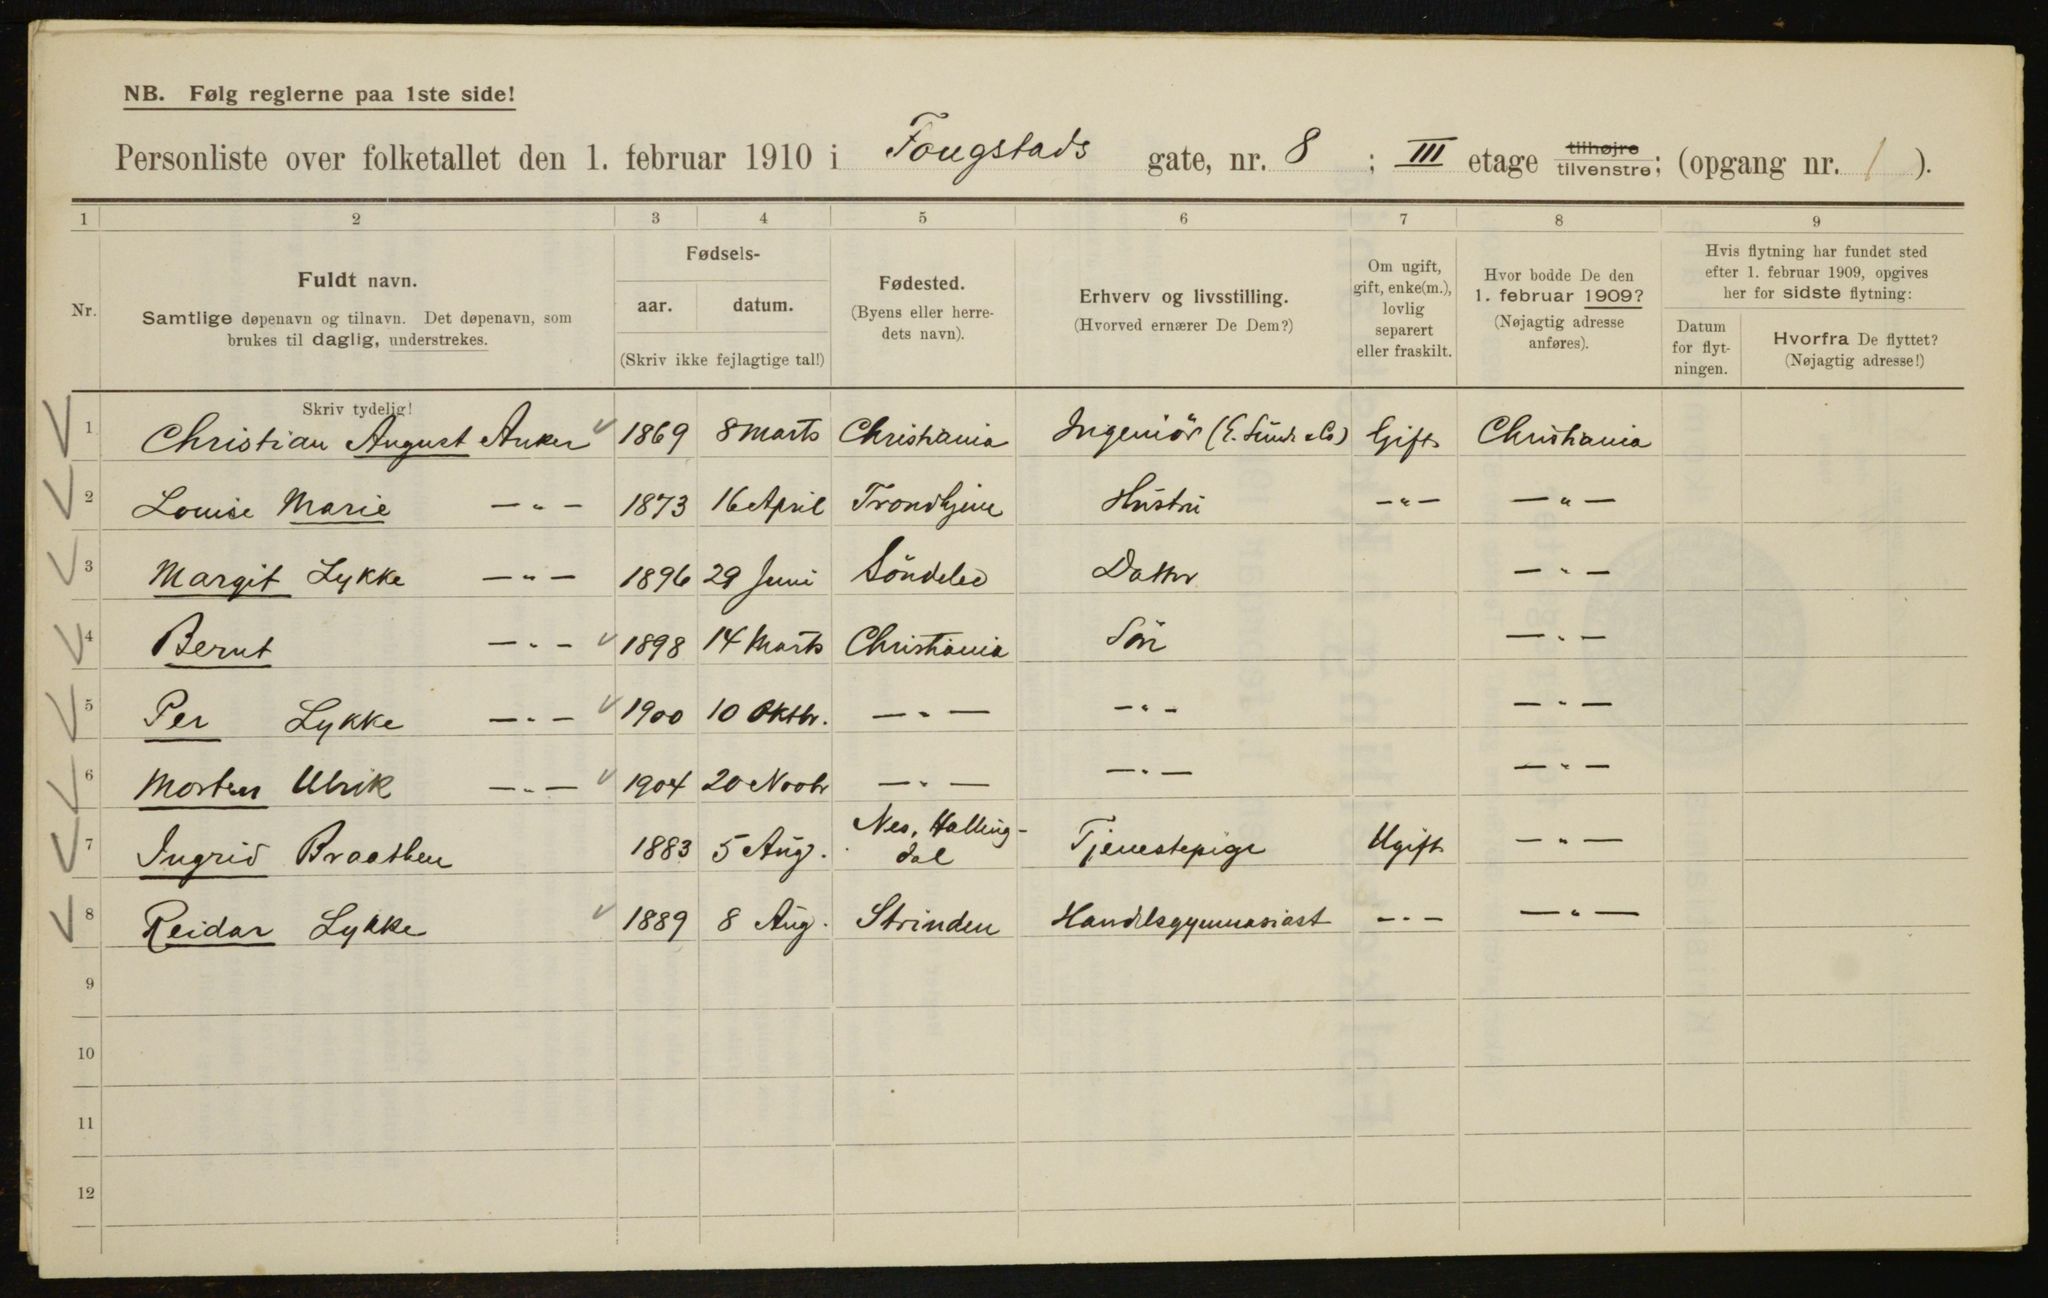 NB. Følg reglerne paa 1ste side!
Personliste over folketallet den 1. februar 1910 i Fougstads gate, nr. 8 ; III etage tilhøjre tilvenstre; (opgang nr. 1 ).
1 2 3 4 5 6 7 8 9
Nr.
Fuldt navn.
Samtlige døpenavn og tilnavn. Det døpenavn, som
brukes til daglig, understrekes.
Skriv tydelig!
Fødsels-
aar. datum.
(Skriv ikke fejlagtige tal!)
Fødested.
(Byens eller herre-
dets navn).
Erhverv og livsstilling.
(Hvorved ernærer De Dem?)
Om ugift,
gift, enke(m.),
lovlig
separert
eller fraskilt.
Hvor bodde De den
1. februar 1909?
(Nøjagtig adresse
anføres).
Hvis flytning har fundet sted
efter 1. februar 1909, opgives
her for sidste flytning:
Datum
for flyt-
ningen.
Hvorfra De flyttet?
(Nøjagtig adresse!)
1 Christian August Anker 1869 8 Marts Christiania Ingeniör (E. Sunde & Co) Gift Christiania
2 Louise Marie —"— 1873 16 April Trondhjem Hustru —"— —"—
3 Margit Lykke —"— 1896 29 Juni Söndeled Datter —"—
4 Bernt —"— 1898 14 Marts Christiania Sön —"—
5 Per Lykke —"— 1900 10 Oktbr. —"— —"— —"—
6 Morten Ulrik —"— 1904 20 Novbr —"— —"— —"—
7 Ingrid Braathen 1883 5 Aug. Nes, Halling-
dal Tjenestepige Ugift —"—
8 Reidar Lykke 1889 8 Aug. Strinden Handelsgymnasiast —"— —"—
9
10
11
12